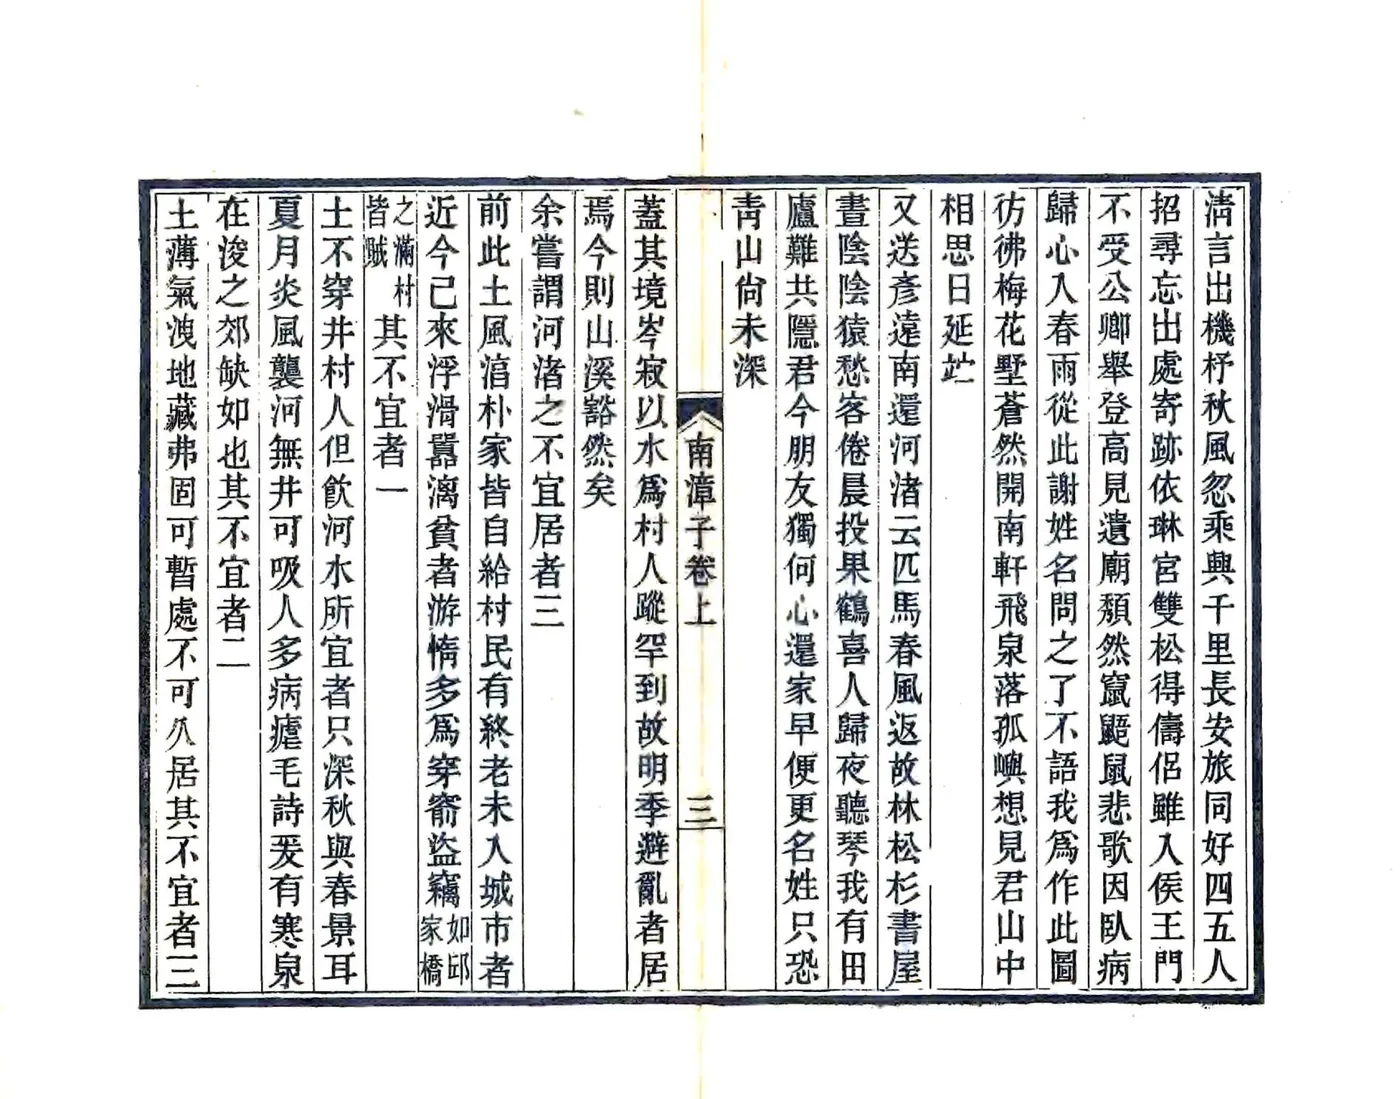 清言出機杼秋風忽乘興千里長安旅同好四五人
招尋忘出處寄跡依琳宮雙松得儔侶雖入侯王門
不受公卿舉登高見遺廟頹然竄鼯鼠悲歌因臥病
歸心入春雨從此謝姓名問之了不語我爲作此圖
彷彿梅花墅蒼然開南軒飛泉落孤嶼想見君山中
相思日延竚
又送彥遠南還河渚云匹馬春風返故林松杉書屋
晝陰陰猿愁客倦晨投果鶴喜人歸夜聽琴我有田
廬難共隱君今朋友獨何心還家早便更名姓只恐
靑山尙未深
南漳子卷上
三
蓋其境岑寂以水爲村人蹤罕到故明季避亂者居
焉今則山溪豁然矣
余嘗謂河渚之不宜居者三
前此土風湻朴家皆自給村民有終老未入城市者
近今已來浮滑囂漓貧者游惰多爲穿窬盜竊如邱家橋
之滿村皆賊其不宜者一
土不穿井村人但飮河水所宜者只深秋與春景耳
夏月炎風襲河無井可吸人多病瘧毛詩爰有寒泉
在浚之郊缺如也其不宜者二
土薄氣洩地藏弗固可暫處不可久居其不宜者三